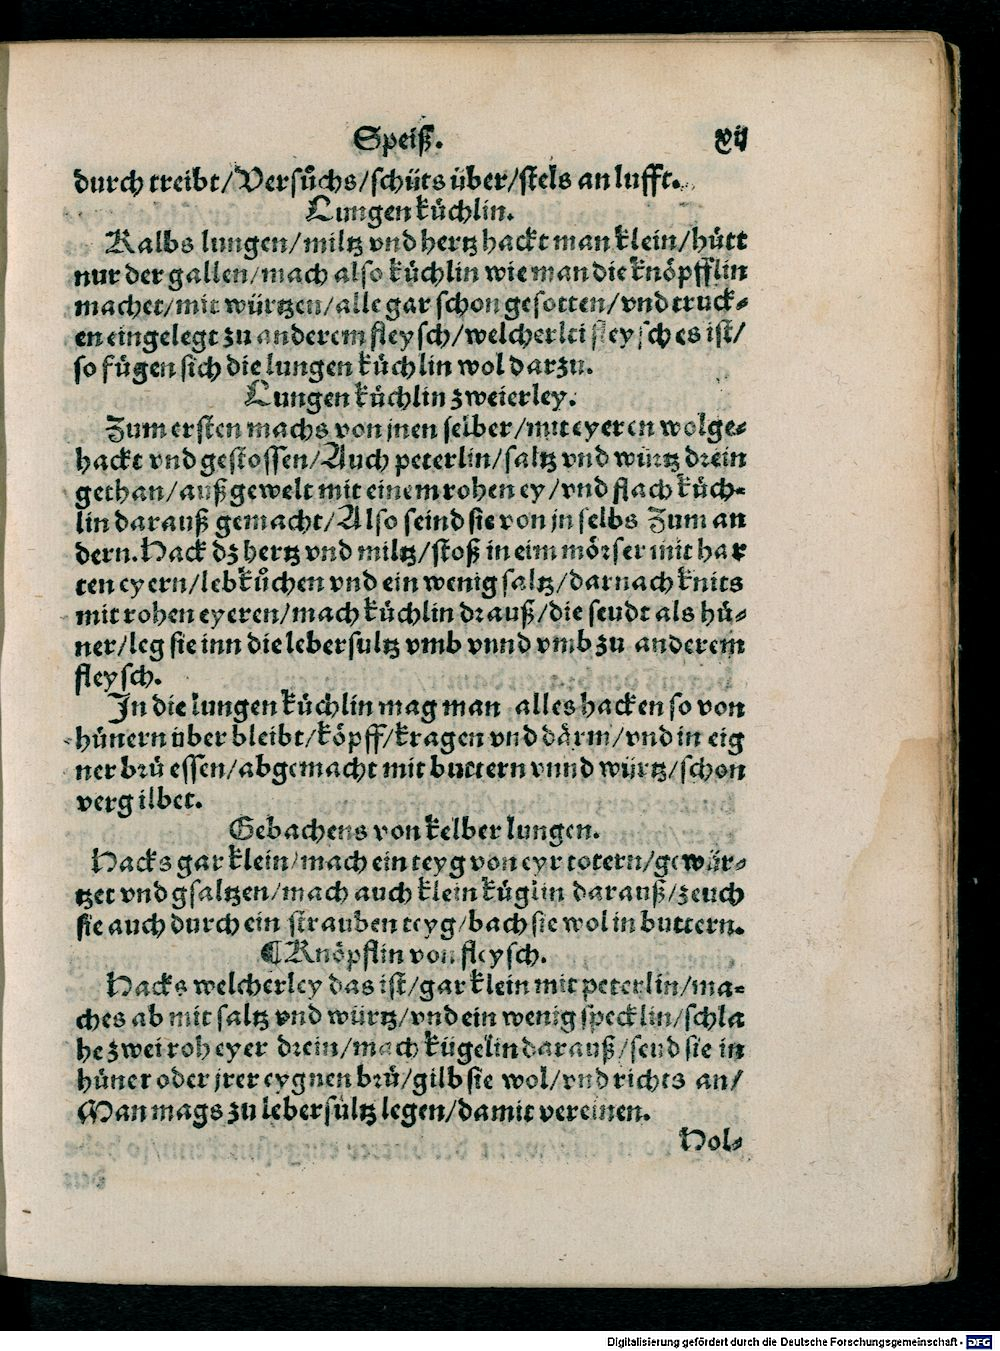 Speiß. xij
durch treibt/Versuͦchs/schüts über/stels an lufft.
Lungen küchlin.
Kalbs lungen/miltz vnd hertz hackt man klein/hütt
nur der gallen/mach also küchlin wie man die knöpfflin
machet/mit würtzen/alle gar schon gesotten/vnd truck⸗
en eingelegt zu anderem fleysch/welcherlei fleysch es ist/
so fügen sich die lungen küchlin wol darzu.
Lungen küchlin zweierley.
Zum ersten machs von jnen selber/mit eyeren wolge⸗
hackt vnd gestossen/Auch peterlin/saltz vnd würtz drein
gethan/auß gewelt mit einem rohen ey/vnd flach küch⸗
lin darauß gemacht/Also seind sie von jn selbs Zum an
dern. Hack dz hertz vnd miltz/stoß in eim mörser mit har
ten eyern/lebkuͦchen vnd ein wenig saltz/darnach knits
mit rohen eyeren/mach küchlin drauß/die seudt als hü⸗
ner/leg sie inn die lebersultz vmb vnnd vmb zu anderem
fleysch.
In die lungen küchlin mag man alles hacken so von
hünern über bleibt/köpff/kragen vnd därm/vnd in eig
ner brü essen/abgemacht mit buttern vnnd würtz/schon
vergilbet.
Gebachens von kelber lungen.
Hacks gar klein/mach ein teyg von eyr totern/gewür⸗
tzet vnd gsaltzen/mach auch klein küglin darauß/zeuch
sie auch durch ein strauben teyg/bach sie wol in buttern.
¶Knöpflin von fleysch.
Hacks welcherley das ist/gar klein mit peterlin/ma⸗
ches ab mit saltz vnd würtz/vnd ein wenig specklin/schla
he zwei roh eyer drein/mach kügelin darauß/seud sie in
hüner oder jrer eygnen brü/gilb sie wol/vnd richts an/
Man mags zu lebersültz legen/damit vereinen.
Hol⸗
Digitalisierung gefördert durch die Deutsche Forschungsgemeinschaft - DFG